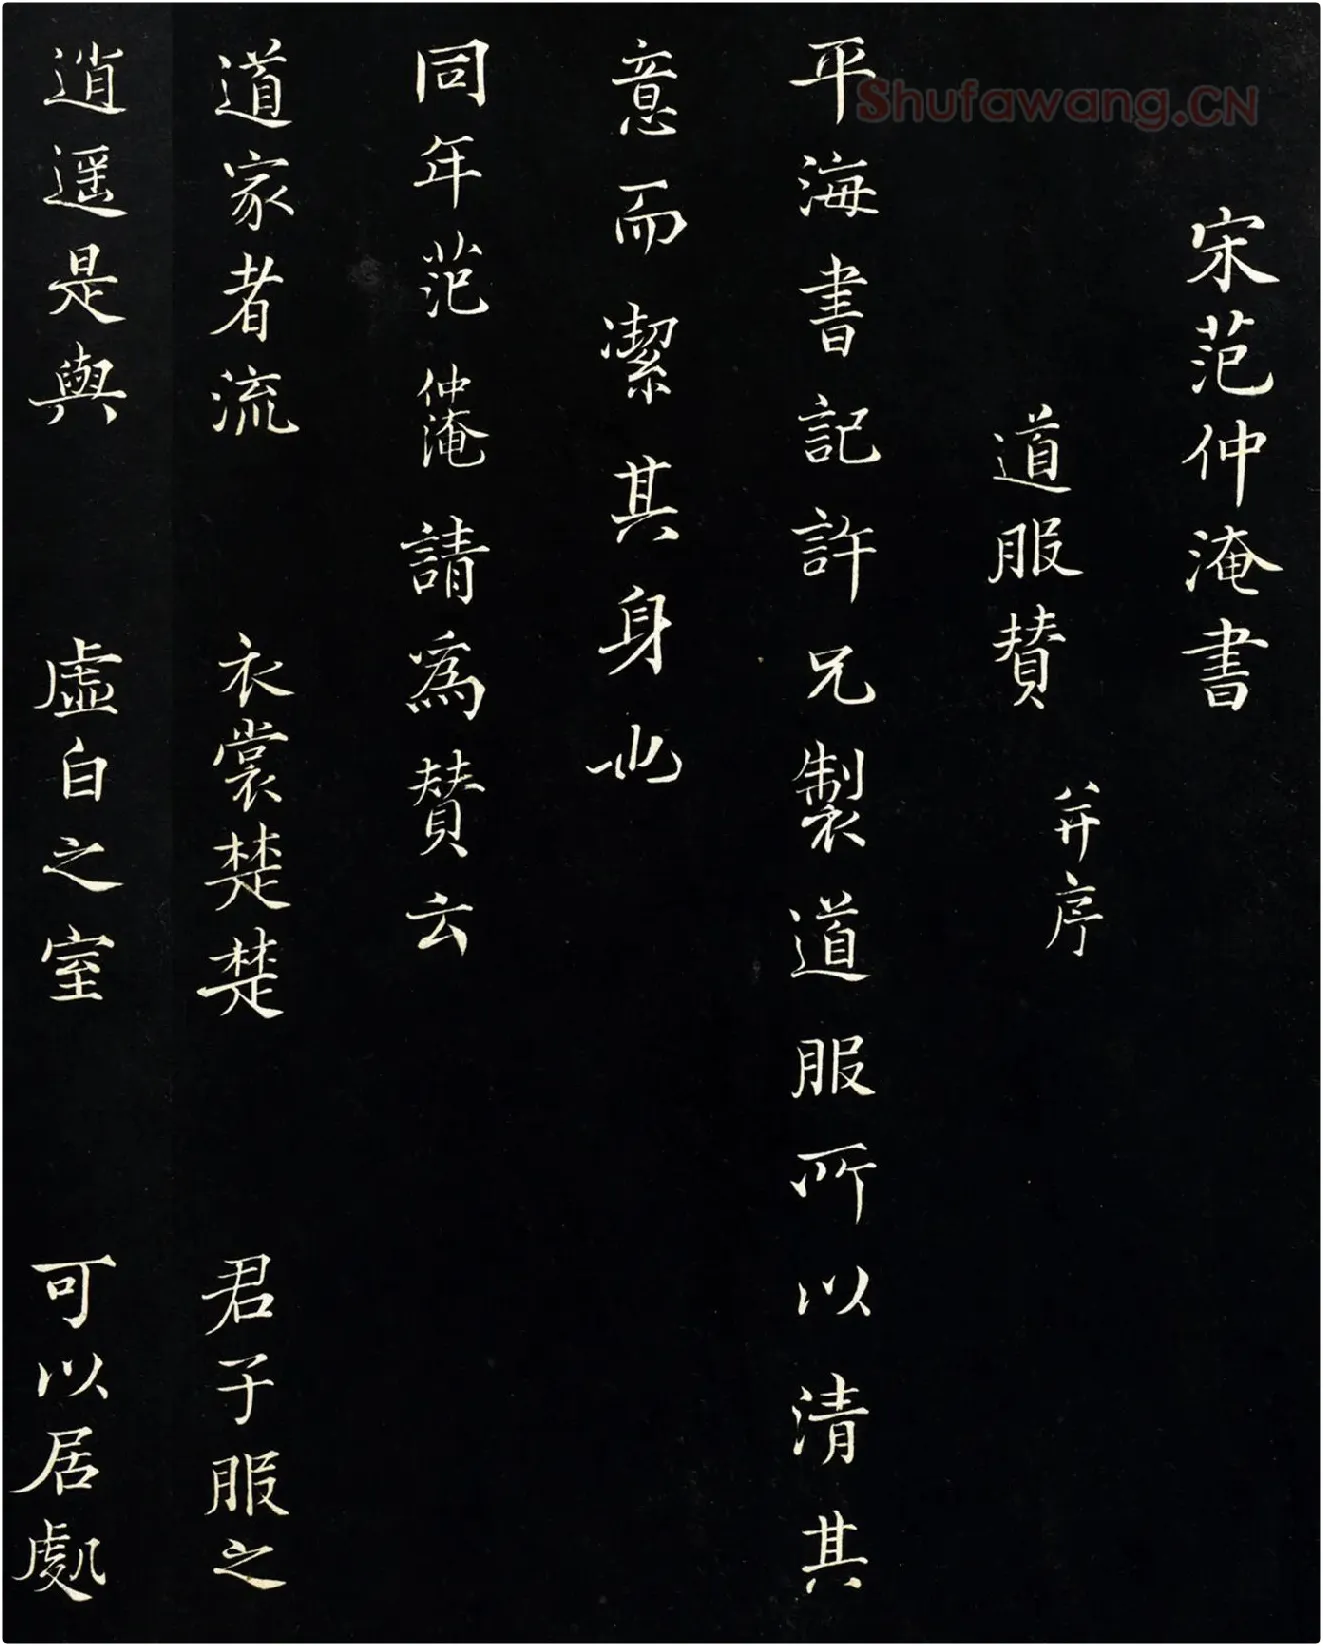 宋范仲淹書
道服賛 并序
平海書記許兄製道服所以清其
意而潔其身也
同年范仲淹請為賛云
道家者流 衣裳楚楚 君子服之
逍遥是與 虚白之室 可以居處
Shufawang.CN